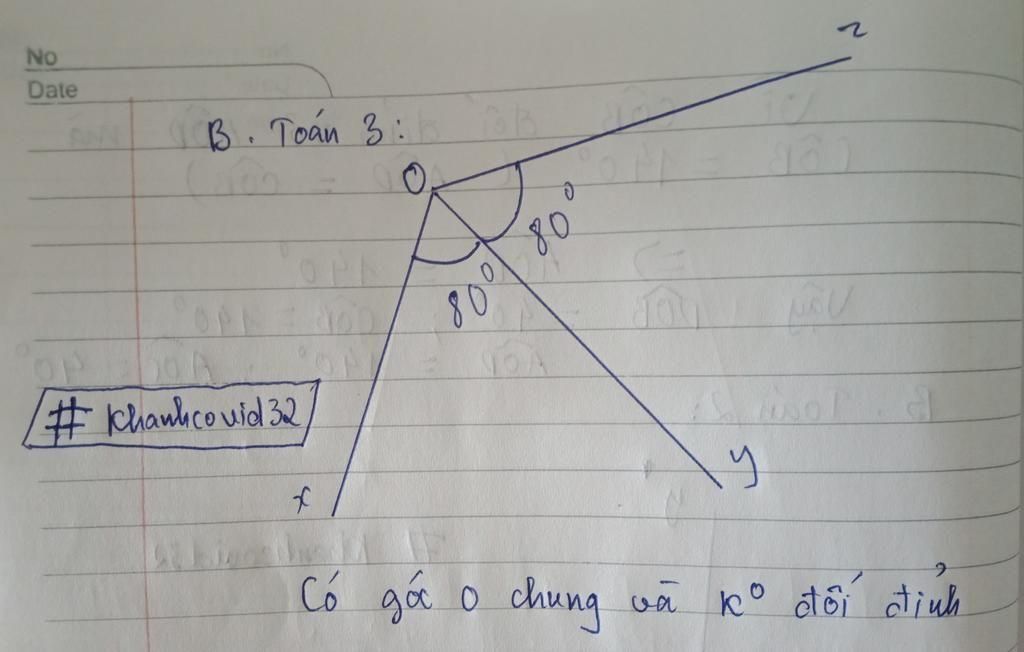 No
Date
B. Toán 3:
z
O
80°
80°
# Khanhcovid32
x
y
Có góc O chung và K° đối đỉnh